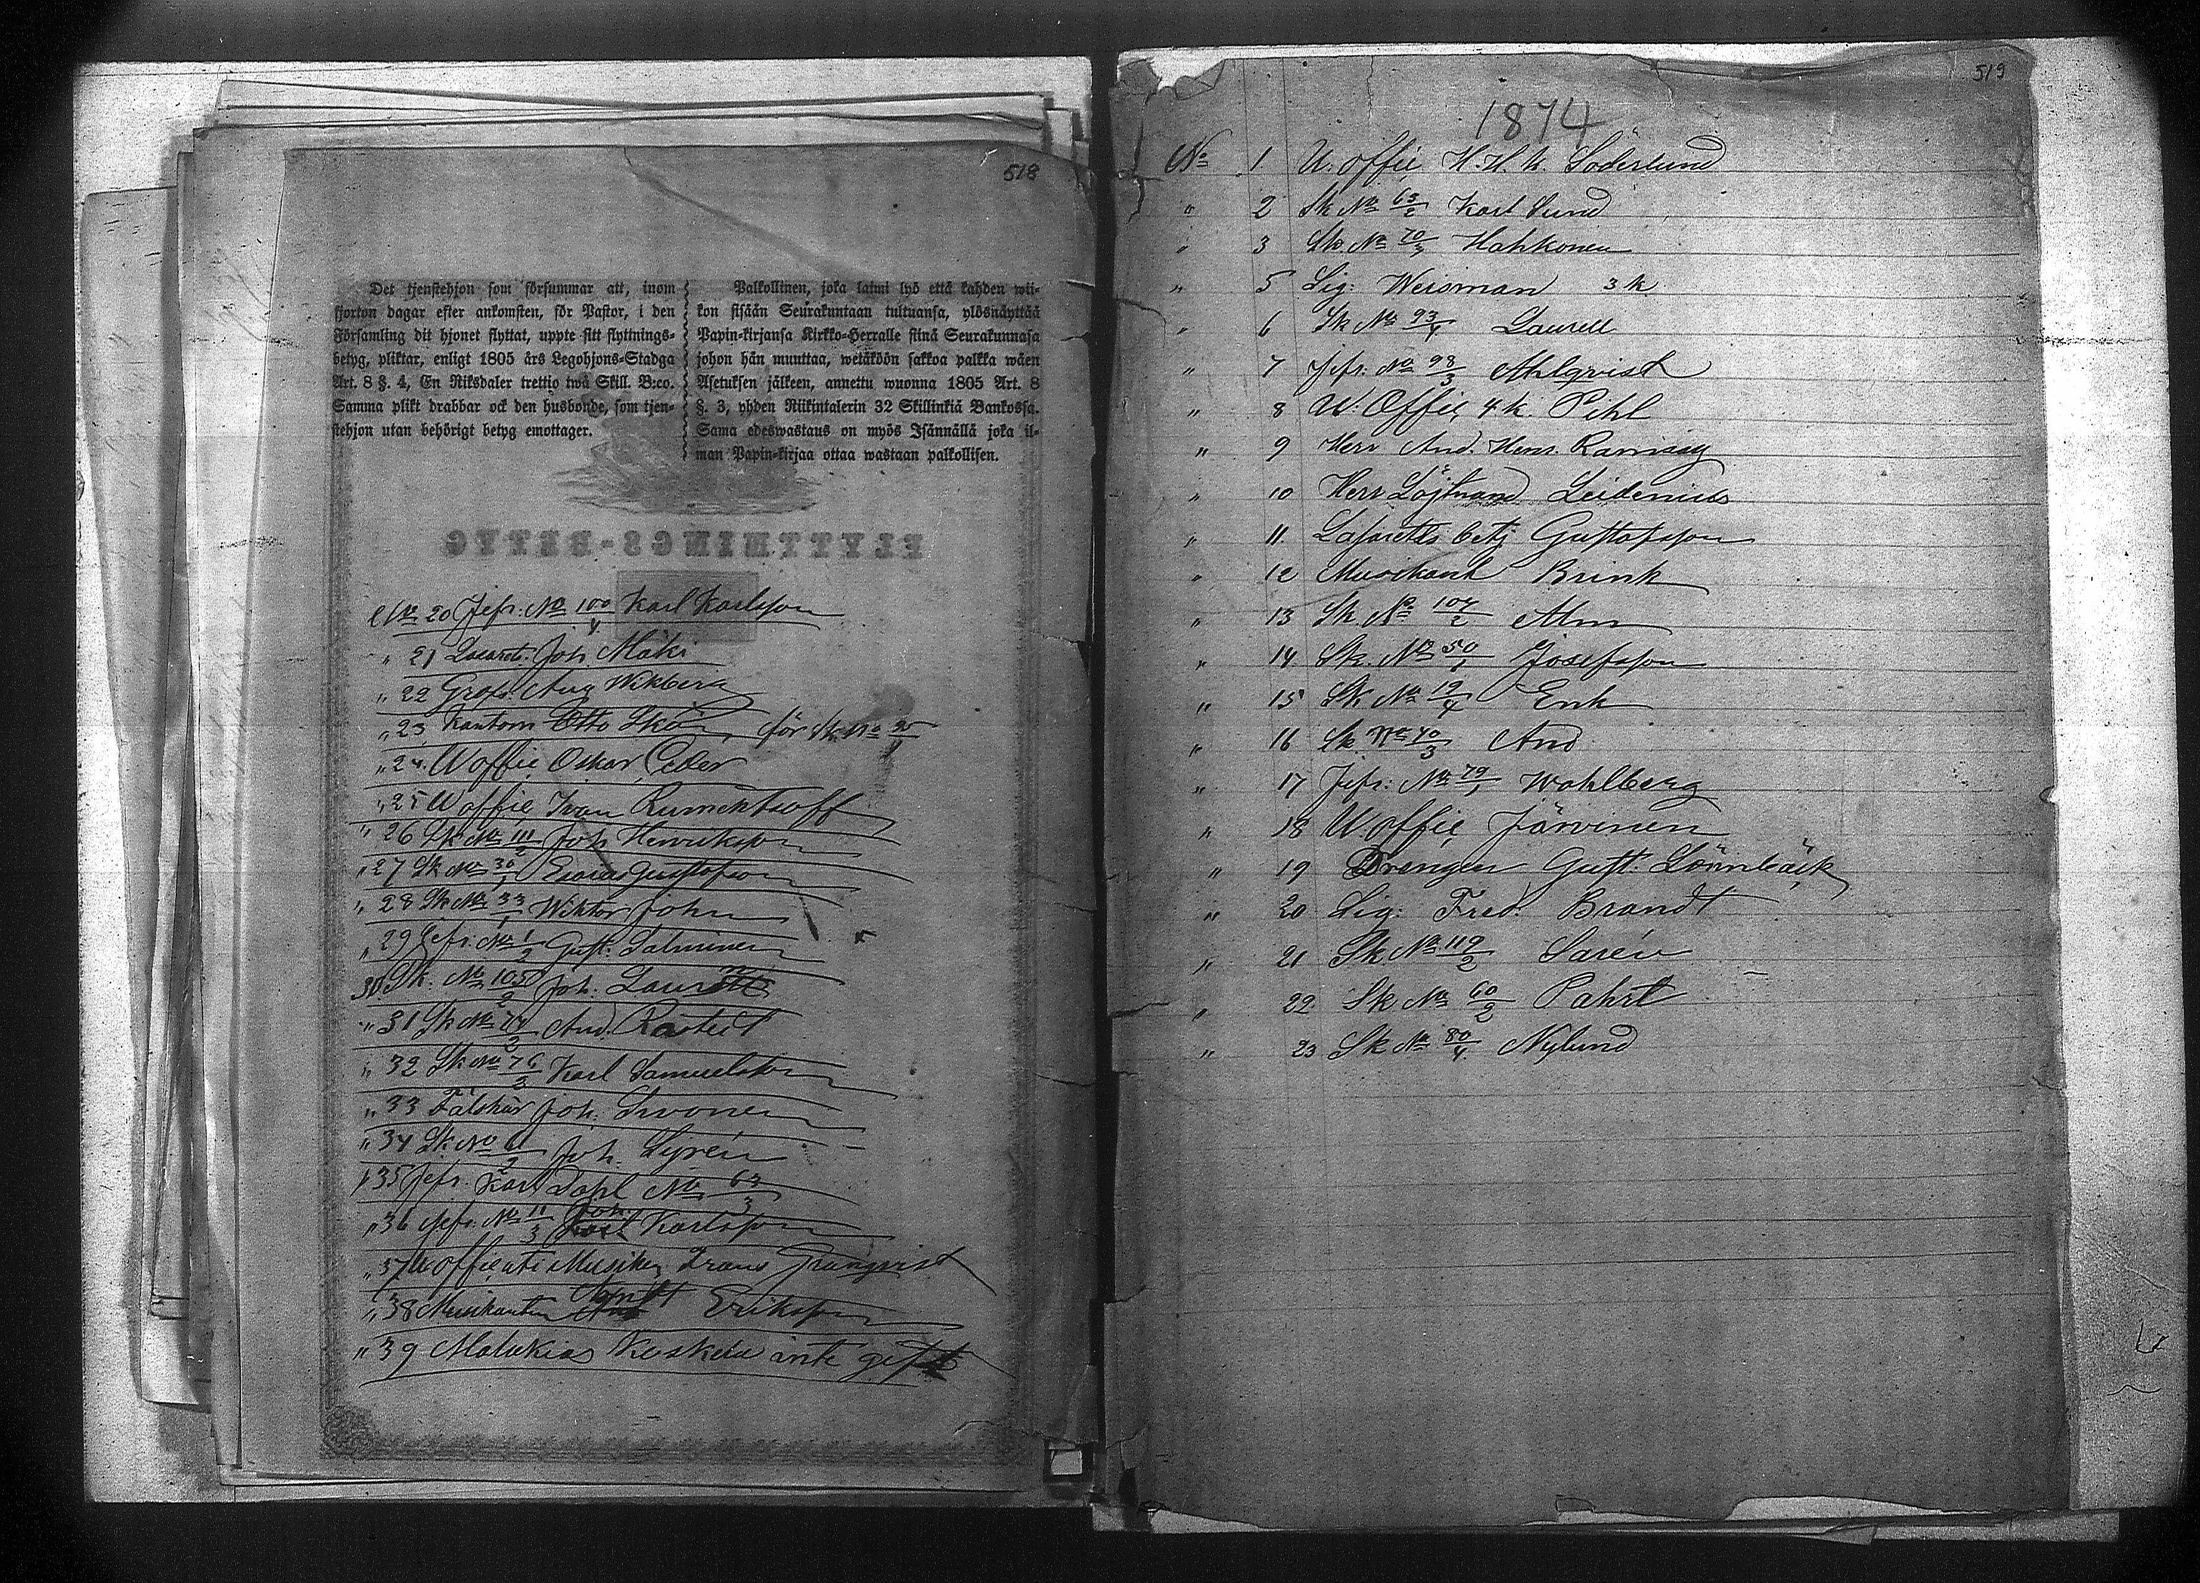 518
Det tjenstehjon som försummar att, inom
fjorton dagar efter ankomsten, för Pastor, i den
Församling dit hjonet flyttat, uppte sitt flyttnings-
betyg, pliktar, enligt 1805 års Legohjons-Stadga
Art. 8 §. 4, En Riksdaler trettio twå Skill. B:co.
Samma plikt drabbar ock den husbonde, som tjen-
stehjon utan behörigt betyg emottager.
Palkollinen, joka laimi lyö että kahden wii-
kon sisään Seurakuntaan tultuansa, ylösnäyttää
Papin-kirjansa Kirkko-Herralle siinä Seurakunnasa
johon hän muuttaa, wetäköön sakkoa palkka wäen
Asetuksen jälkeen, annettu wuonna 1805 Art. 8
§. 3, yhden Riikintalerin 32 Skillinkiä Bankossa.
Sama edeswastaus on myös Isännällä joka il-
man Papin-kirjaa ottaa wastaan palkollisen.
FLYTTNINGS-BETYG
No 20 Jefr: No 100/4 Karl Karlsson
" 21 Joh. Mäki
" 22 Aug Wikberg
" 23 Kantom Otto för Sk No
" 24 Uoffic Oskar Ceder
" 25 Uoffic Ivan
" 26 Sk No 111/2 Joh Henriksson
" 27 Sk No 30/1 Gustafsson
" 28 Sk No 33/1 Wiktor John
" 29 Jefr. No 1/2 Gust. Salminen
30 Sk. No 105/2 Joh.
" 31 Sk No 74/2 And.
" 32 Sk No 76/2 Karl Samuelsson
" 33 Fälskär Joh. Sivonen
" 34 Sk No 6/2 Joh. Syrén
" 35 Jefr. Karl Dahl No 63/3
" 36 Jefr. No 11/3 Joh Karlsson
" 37 Frans Granqvist
" 38 Musikanten Eriksson
" 39 Malakias Keskela inte gift
519
1874
No 1 U. offic H. H. Söderlund
" 2 Sk No 63/2 Karl Lund
" 3 Sk No 70/3 Hahkonen
" 5 Lig: Weisman 3 k
" 6 Sk No 93/4 Laurell
" 7 Jefr: No 98/3 Ahlqvist
" 8 U: Offic 4 k. Pihl
" 9 Herr And. Hens. Ramsay
" 10 Herr Löjtnand Leidenius
" 11 Lasaretts betj Gustafsson
" 12 Musikant Brink
" 13 Sk No 104/2 Alm
" 14 Sk. No 50/1 Josefsson
" 15 Sk No 19/4 Enk
" 16 Sk No 40/3 And
" 17 Jefr: No 79/1 Wahlberg
" 18 U. offic Järvinen
" 19 Drengen Gust. Lönnbäck
" 20 Lig: Fred. Brandt
" 21 Sk No 119/2 Sarén
" 22 Sk No 60/2 Pahrt
" 23 Sk No 80/4 Nylund